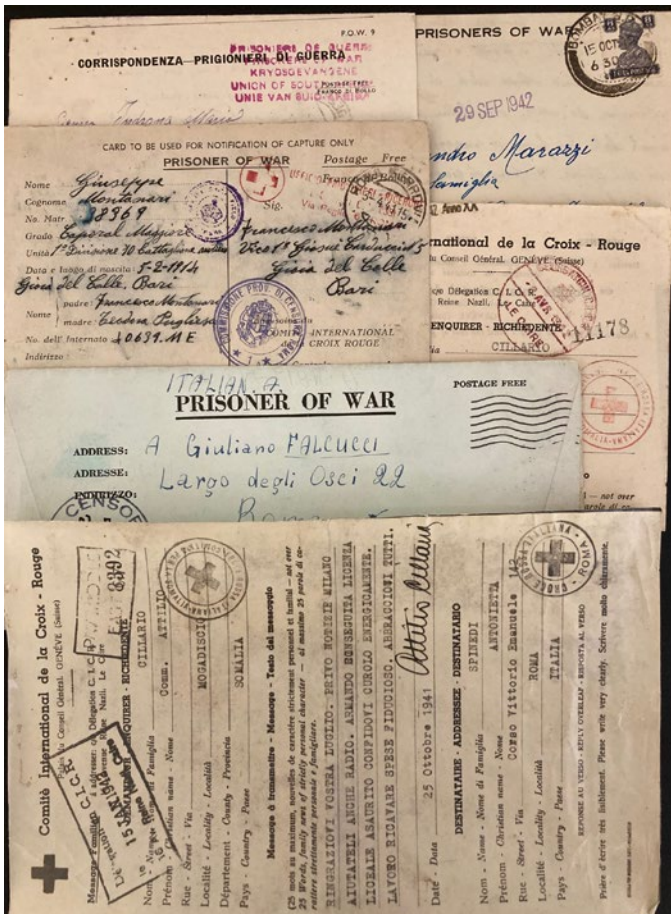 P.O.W. 9
CORRISPONDENZA - PRIGIONIERI DI GUERRA
PRISONIERS DE GUERRE
PRISONERS OF WAR
KRYGSGEVANGENE
UNION OF SOUTH AFRICA
UNIE VAN SUID-AFRIKA
POSTAGE FREE
FRANCO DI BOLLO
PRISONERS OF WAR
BOMBAY
15 OCT
6 30
29 SEP 1942
Marazzi
famiglia
CARD TO BE USED FOR NOTIFICATION OF CAPTURE ONLY
PRISONER OF WAR Postage Free
Nome Giuseppe
Cognome Montanari
No. Matr 38969
Grado Caporal Maggiore
Unità 1ª Divisione 70 Battaglione
Data e luogo di nascita: 5-2-1914
Gioia del Colle, Bari
padre: Francesco Montanari
Nome
madre: Teodora Pugliese
No. dell' Internato 40639. M E
Indirizzo:
Sig. Francesco Montanari
Vico 1° Giosue Carducci
Gioia del Colle
Bari
COMMISSIONE PROV. DI CENSURA ROMA
COMITÉ INTERNATIONAL
DE CROIX ROUGE
Anno XX
rnational de la Croix - Rouge
du Conseil Général. GENÈVE (Suisse)
Délégation C. I. C. R.
Reine Nazli. Le Caire
ENQUIRER - RICHIEDENTE
11178
CILLARIO
LE CAIRE
— not over
ITALIAN. A.
PRISONER OF WAR
POSTAGE FREE
ADDRESS: A Giuliano FALCUCCI
ADRESSE: Largo degli Osci 22
INDIRIZZO: Roma
CENSOR
Comité International de la Croix - Rouge
Palais du Conseil Général. GENÈVE (Suisse)
Délégation C. I. C. R.
Reine Nazli. Le Caire
ENQUIRER - RICHIEDENTE
15 JAN 1942
Nom - Name - Nome di Famiglia CILLARIO
Prénom - Christian name - Nome Comm. ATTILIO
Rue - Street - Via
Localité - Locality - Località MOGADISCIO
Département - County - Provincia
Pays - Country - Paese SOMALIA
Message à transmettre - Message - Testo del messaggio
(25 mots au maximum, nouvelles de caractère strictement personnel et familial — not over
25 Words, family news of strictly personal character — al massimo 25 parole di ca-
rattere strettamente personale e famigliare).
RINGRAZIOVI VOSTRA LUGLIO. PRIVO NOTIZIE MILANO
AIUTATELI ANCHE RADIO. ARMANDO CONSEGUITA LICENZA
LICEALE ASAURITO CONFIDOVI CUROLO ENERGICAMENTE.
LAVORO RICAVARE SPESE FIDUCIOSO. ABBRACCIONI TUTTI.
Date - Data 25 Ottobre 1941
Attilio Cillario
DESTINATAIRE - ADDRESSEE - DESTINATARIO
Nom - Name - Nome di Famiglia SPINEDI
Prénom - Christian name - Nome ANTONIETTA
Rue - Street - Via Corso Vittorio Emanuele 142
Localité - Locality - Località ROMA
Pays - Country - Paese ITALIA
REPONSE AU VERSO - REPLY OVERLEAF - RISPOSTA AL VERSO
Prière d'écrire très lisiblement. Please write very clearly. Scrivere molto chiaramente.